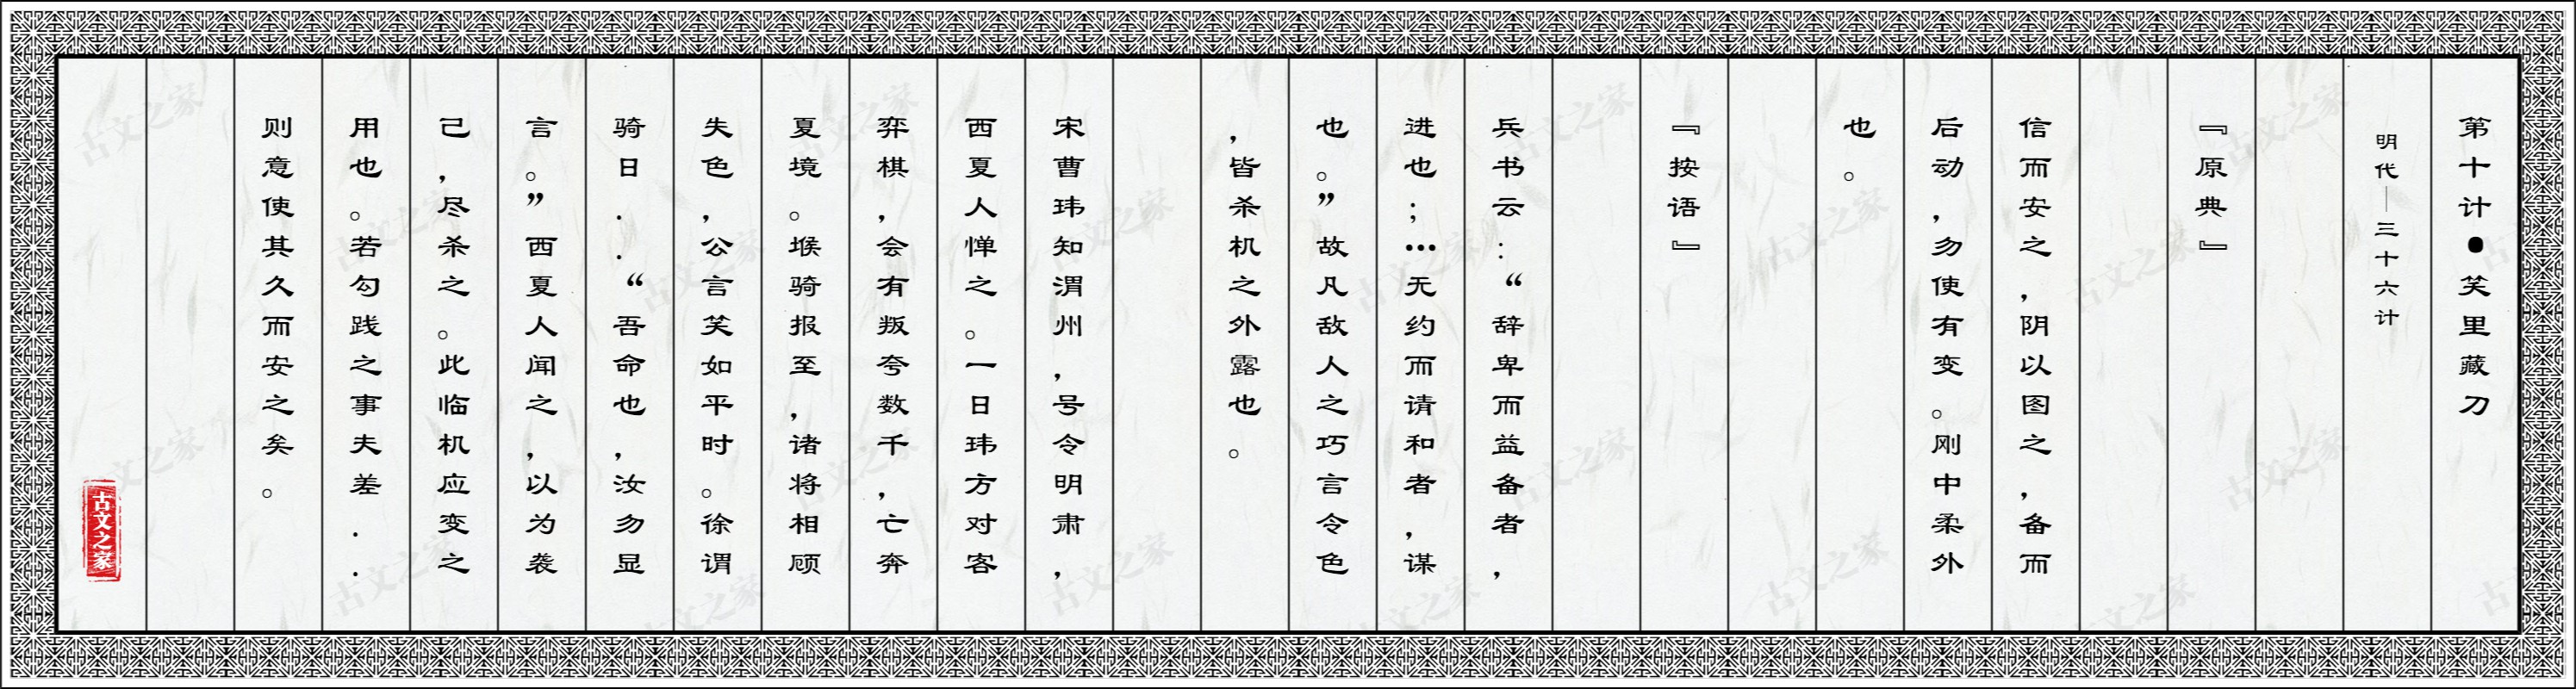 第十计●笑里藏刀
明代—三十六计
『原典』
信而安之，阴以图之，备而
后动，勿使有变。刚中柔外
也。
『按语』
兵书云：“辞卑而益备者，
进也；…无约而请和者，谋
也。”故凡敌人之巧言令色
，皆杀机之外露也。
宋曹玮知渭州，号令明肃，
西夏人惮之。一日玮方对客
弈棋，会有叛夸数千，亡奔
夏境。堠骑报至，诸将相顾
失色，公言笑如平时。徐谓
骑日．．“吾命也，汝勿显
言。”西夏人闻之，以为袭
己，尽杀之。此临机应变之
用也。若勾践之事夫差．．
则意使其久而安之矣。
古文之家